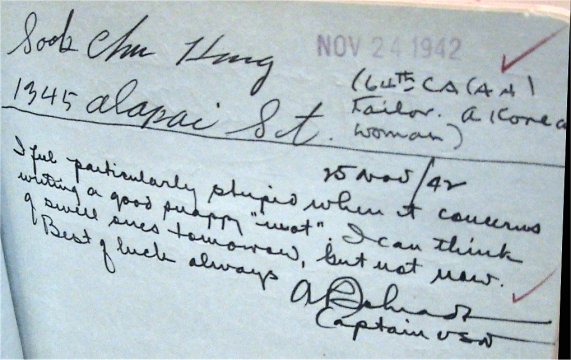 Sook Chu Hong
NOV 24 1942
(64th CA (AA)
Tailor. A Korean
woman)
1345 Alapai St.
25 Nov/42
I feel particularly stupid when it concerns
writing a good snappy "mot". I can think
of swell ones tomorrow, but not now.
Best of luck always
Captain USN